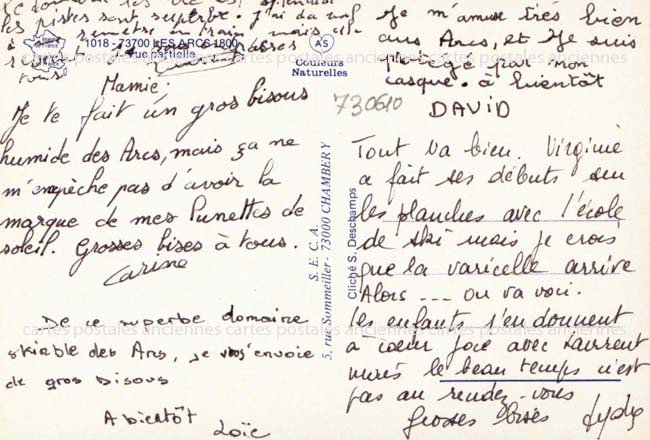 les pistes sont superbe. J'ai du mal
à remettre en train mais
1018 - 73700 LES ARCS 1800
vue partielle
AS
Couleurs
Naturelles
Mamie,
Je te fait un gros bisous
humide des Arcs, mais ça ne
m'empèche pas d'avoir la
marque de mes lunettes de
soleil. Grosses bises à tous.
Carine
De ce superbe domaine
skiable des Arcs, je vous envoie
de gros bisous
A bientôt
Loïc
730610
S. E. C. A.
5, rue Sommeiller - 73000 CHAMBERY
Cliché S. Deschamps
Je m'amuse très bien
aux Arcs, et je suis
protégé par mon
casque. à bientôt
DAVID
Tout va bien. Virginie
a fait ses débuts sur
les planches avec l'école
de ski mais je crois
que la varicelle arrive
Alors --- on va voir.
les enfants s'en donnent
à coeur joie avec Laurent
mais le beau temps n'est
pas au rendez-vous
Grosses bises Lydie
cartes postales anciennes cartes postales anciennes cartes postales anciennes